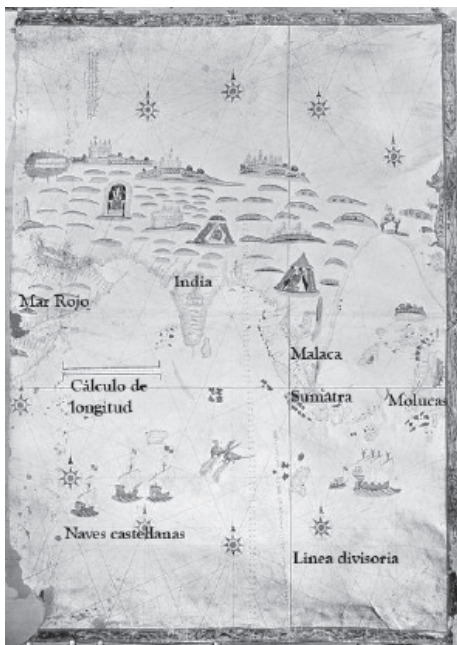 India
Mar Rojo
Malaca
Cálculo de
longitud
Sumatra
Molucas
Naves castellanas
Línea divisoria